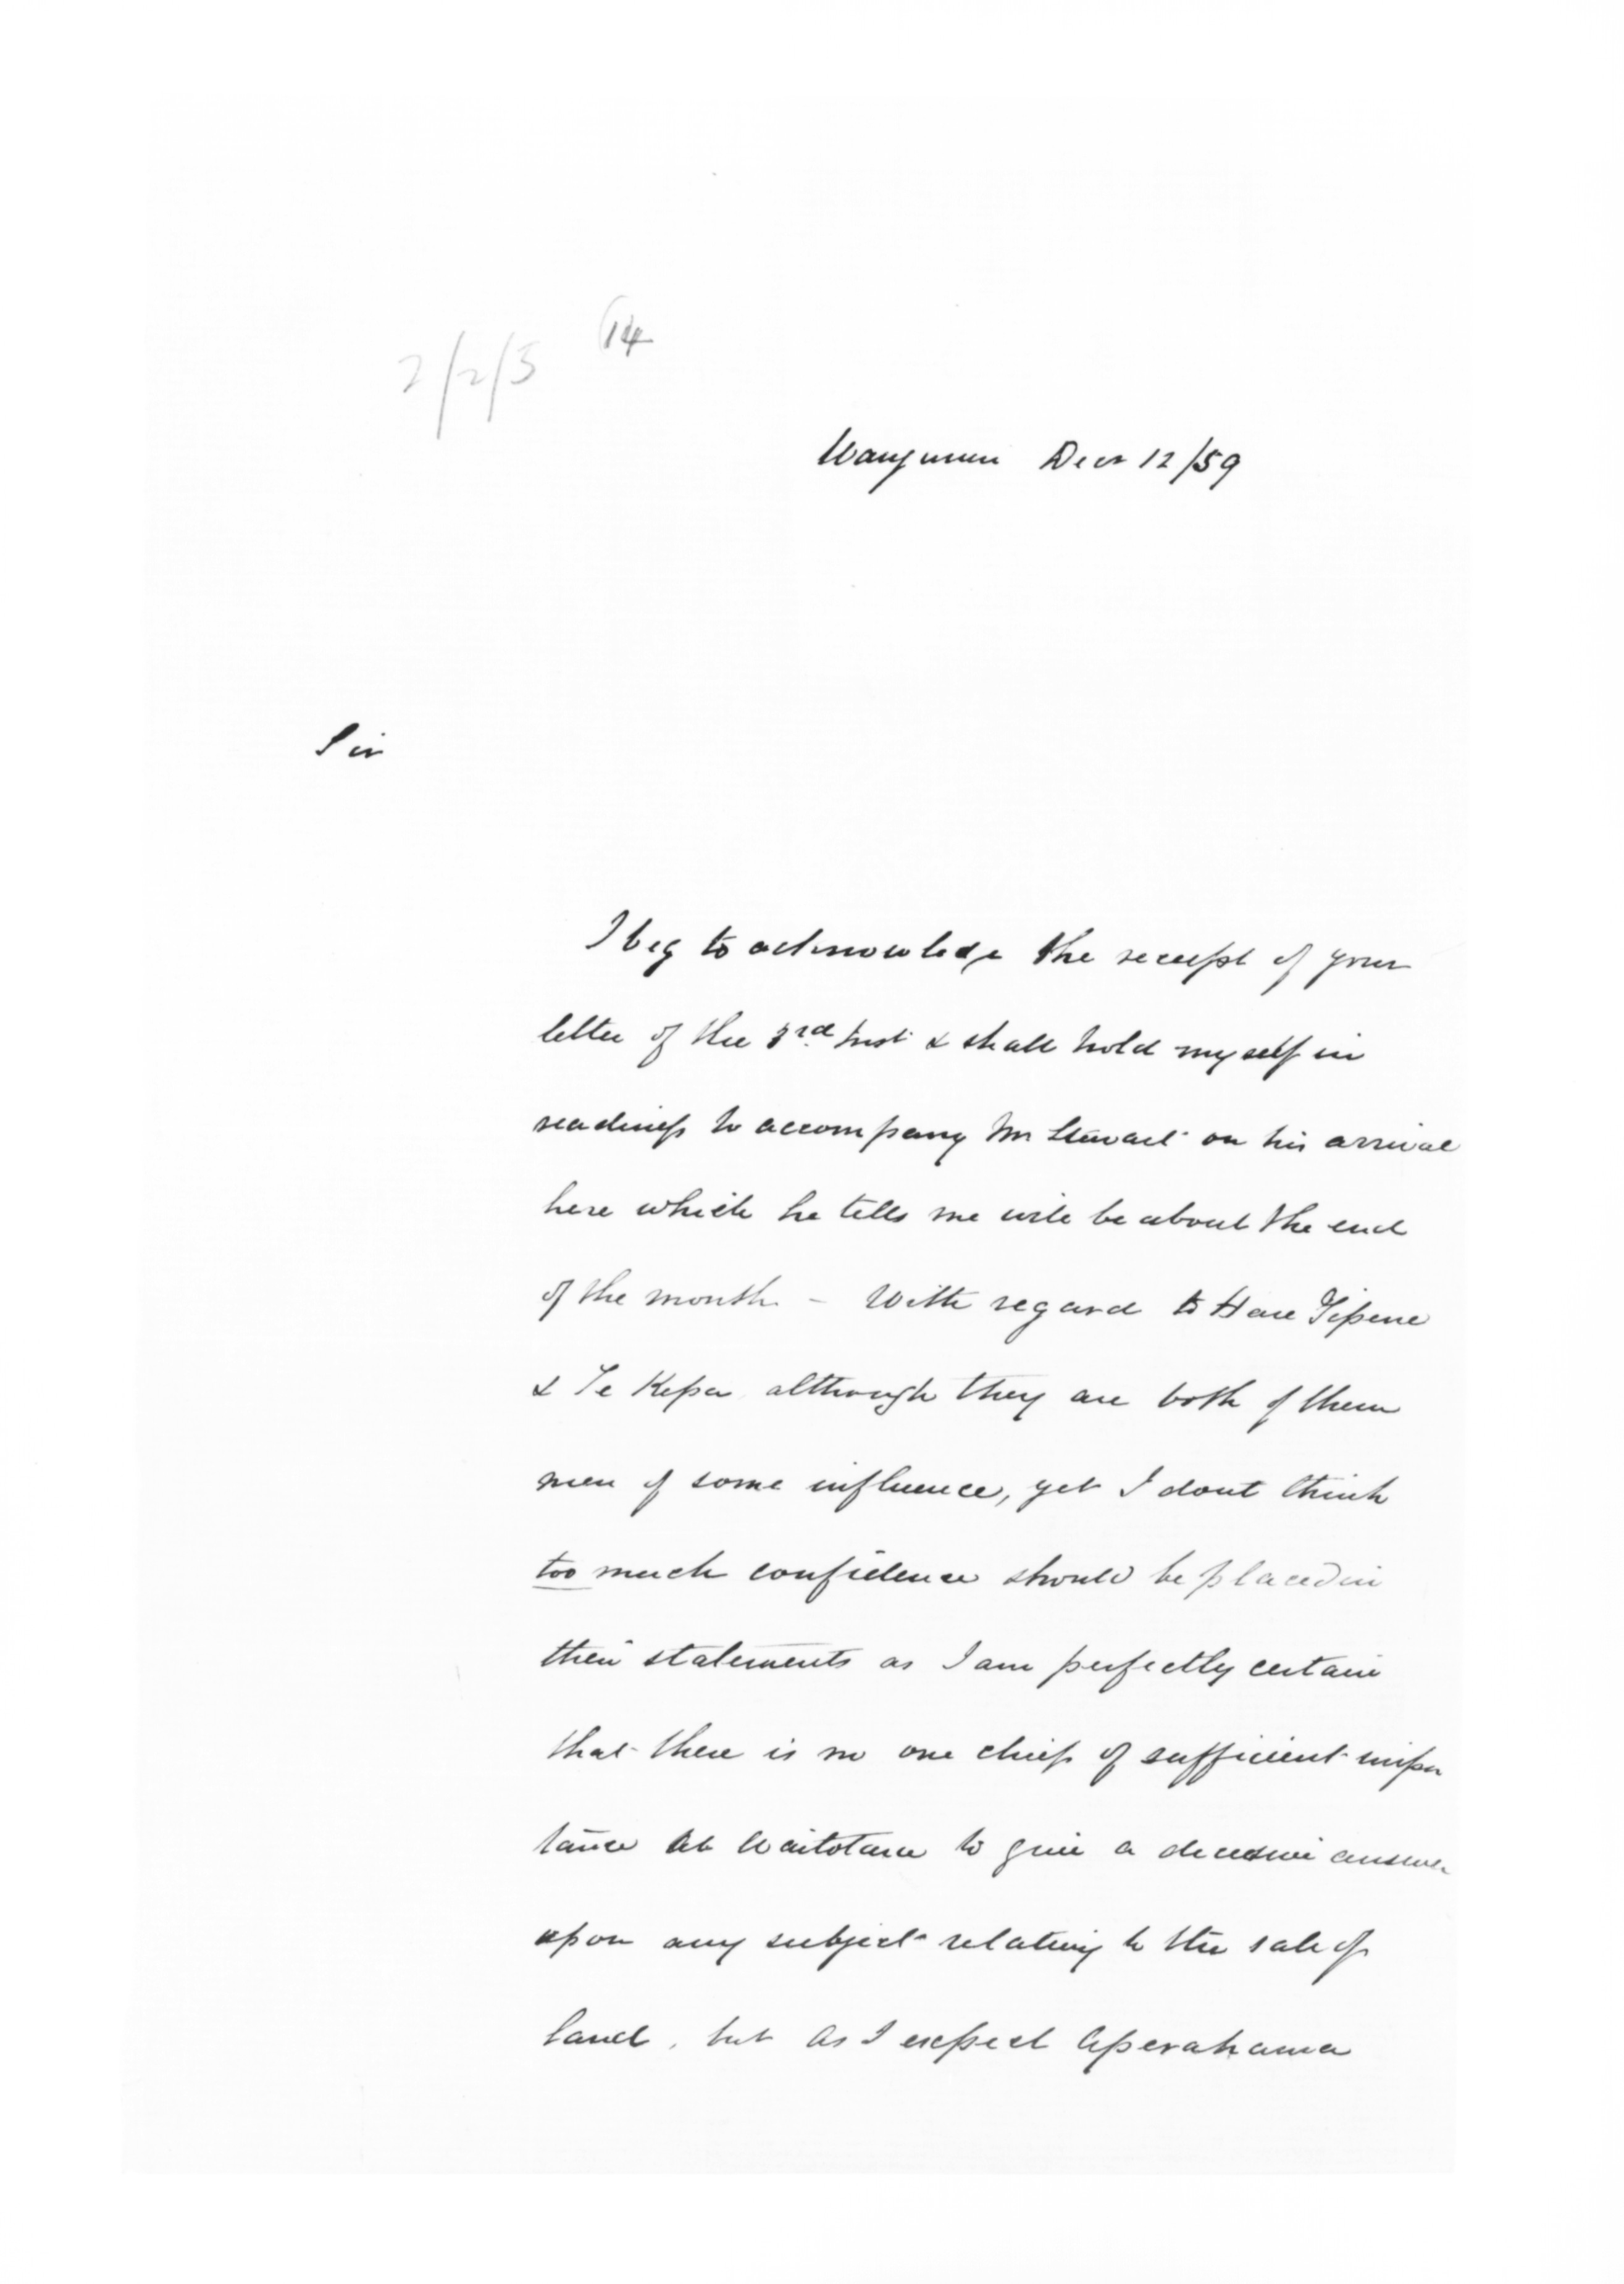 2/2/5 (14
Wanganui Decr 12/59
Sir
I beg to acknowledge the receipt of your
letter of the 3rd Inst & shall hold myself in
readiness to accompany Mr Stewart on his arrival
here which he tells me will be about the end
of the month. - With regard to Hare Tipene
& Te Kepa although they are both of them
men of some influence, yet I dont think
too much confidence should be placed in
their statements as I am perfectly certain
that there is no one chief of sufficient impor
tance at Waitotara to give a decisive answer
upon any subject relating to the sale of
land, but as I expect Aperahama